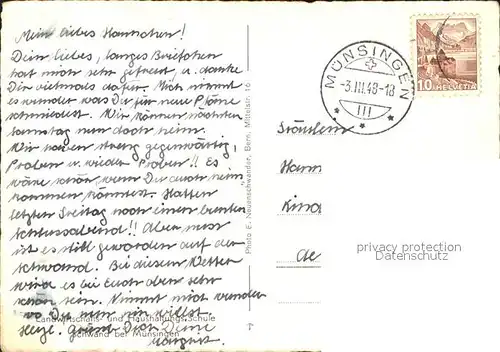 Mein liebes Hannchen!
Dein liebes, langes Briefchen
hat mich sehr gefreut, u. danke
Dir vielmals dafür. Mich nimmt
es wunder was Du für neue Pläne
schmiedest. Wir können nächsten
Samstag nun doch heim.
Wir haben streng gegenwärtig,
Proben u. wieder Proben!! Es
wäre schön, wenn Du auch heim
kommen könntest. Hatten
letzten Freitag noch einen bunten
Schlussabend!! Aber nun
ist es still geworden auf der
Schwand. Bei diesem Wetter
wird es bei Euch oben sehr
schön sein. Nimmt mich wunder
wo Du nun hin willst.
Herzl. grüsst Dich Deine
Margrit.
Landwirtschafts- und Haushaltungs-Schule
Schwand bei Münsingen
Photo E. Neuenschwander, Bern, Mittelstr. 16
MÜNSINGEN
-3.III.48-18
III
10 HELVETIA
Fräulein
Hann
Kind
de
privacy protection
Datenschutz